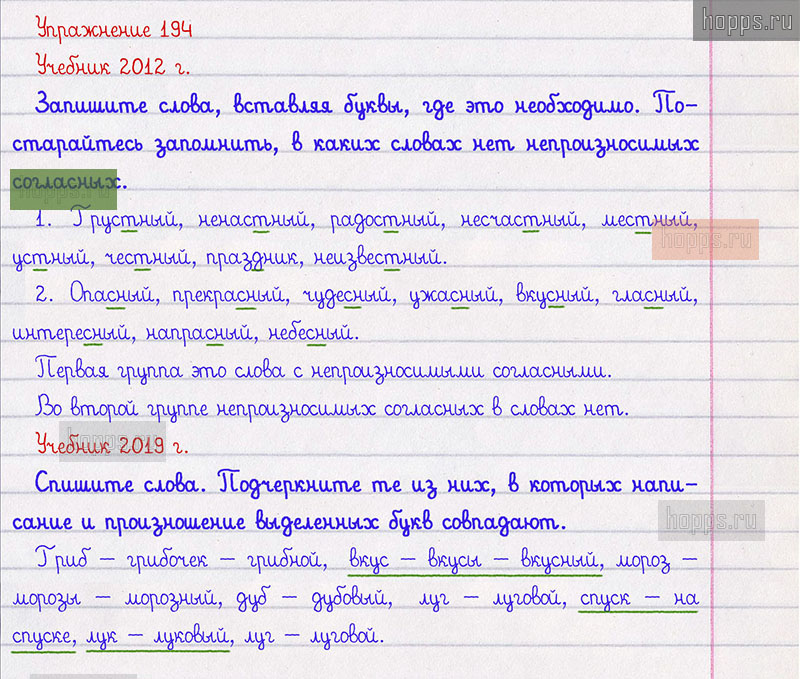 hopps.ru
Упражнение 194
Учебник 2012 г.
Запишите слова, вставляя буквы, где это необходимо. По-
старайтесь запомнить, в каких словах нет непроизносимых
согласных.
hopps.ru
1. Грустный, ненастный, радостный, несчастный, местный,
hopps.ru
устный, честный, праздник, неизвестный.
2. Опасный, прекрасный, чудесный, ужасный, вкусный, гласный,
интересный, напрасный, небесный.
Первая группа это слова с непроизносимыми согласными.
Во второй группе непроизносимых согласных в словах нет.
hopps.ru
Учебник 2019 г.
Спишите слова. Подчеркните те из них, в которых напи-
сание и произношение выделенных букв совпадают.
hopps.ru
Гриб – грибочек – грибной, вкус – вкусы – вкусный, мороз –
морозы – морозный, дуб – дубовый, луг – луговой, спуск – на
спуске, лук – луковый, луг – луговой.